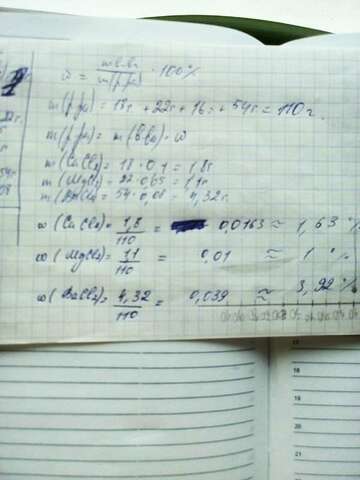 ω = m в.ва / m(р-ра) · 100%
m(р-ра) = 18г + 22г + 16г + 54г = 110г.
m(р-ра) = m(в.ва) · ω
m(CaCl₂) = 18 · 0,1 = 1,8г
m(MgCl₂) = 22 · 0,05 = 1,1г
m(BaCl₂) = 54 · 0,08 = 4,32г
ω(CaCl₂) = 1,8 / 110 = 0,0163 ≈ 1,63 %
ω(MgCl₂) = 1,1 / 110 = 0,01 ≈ 1 %
ω(BaCl₂) = 4,32 / 110 = 0,039 ≈ 3,92 %
17
18